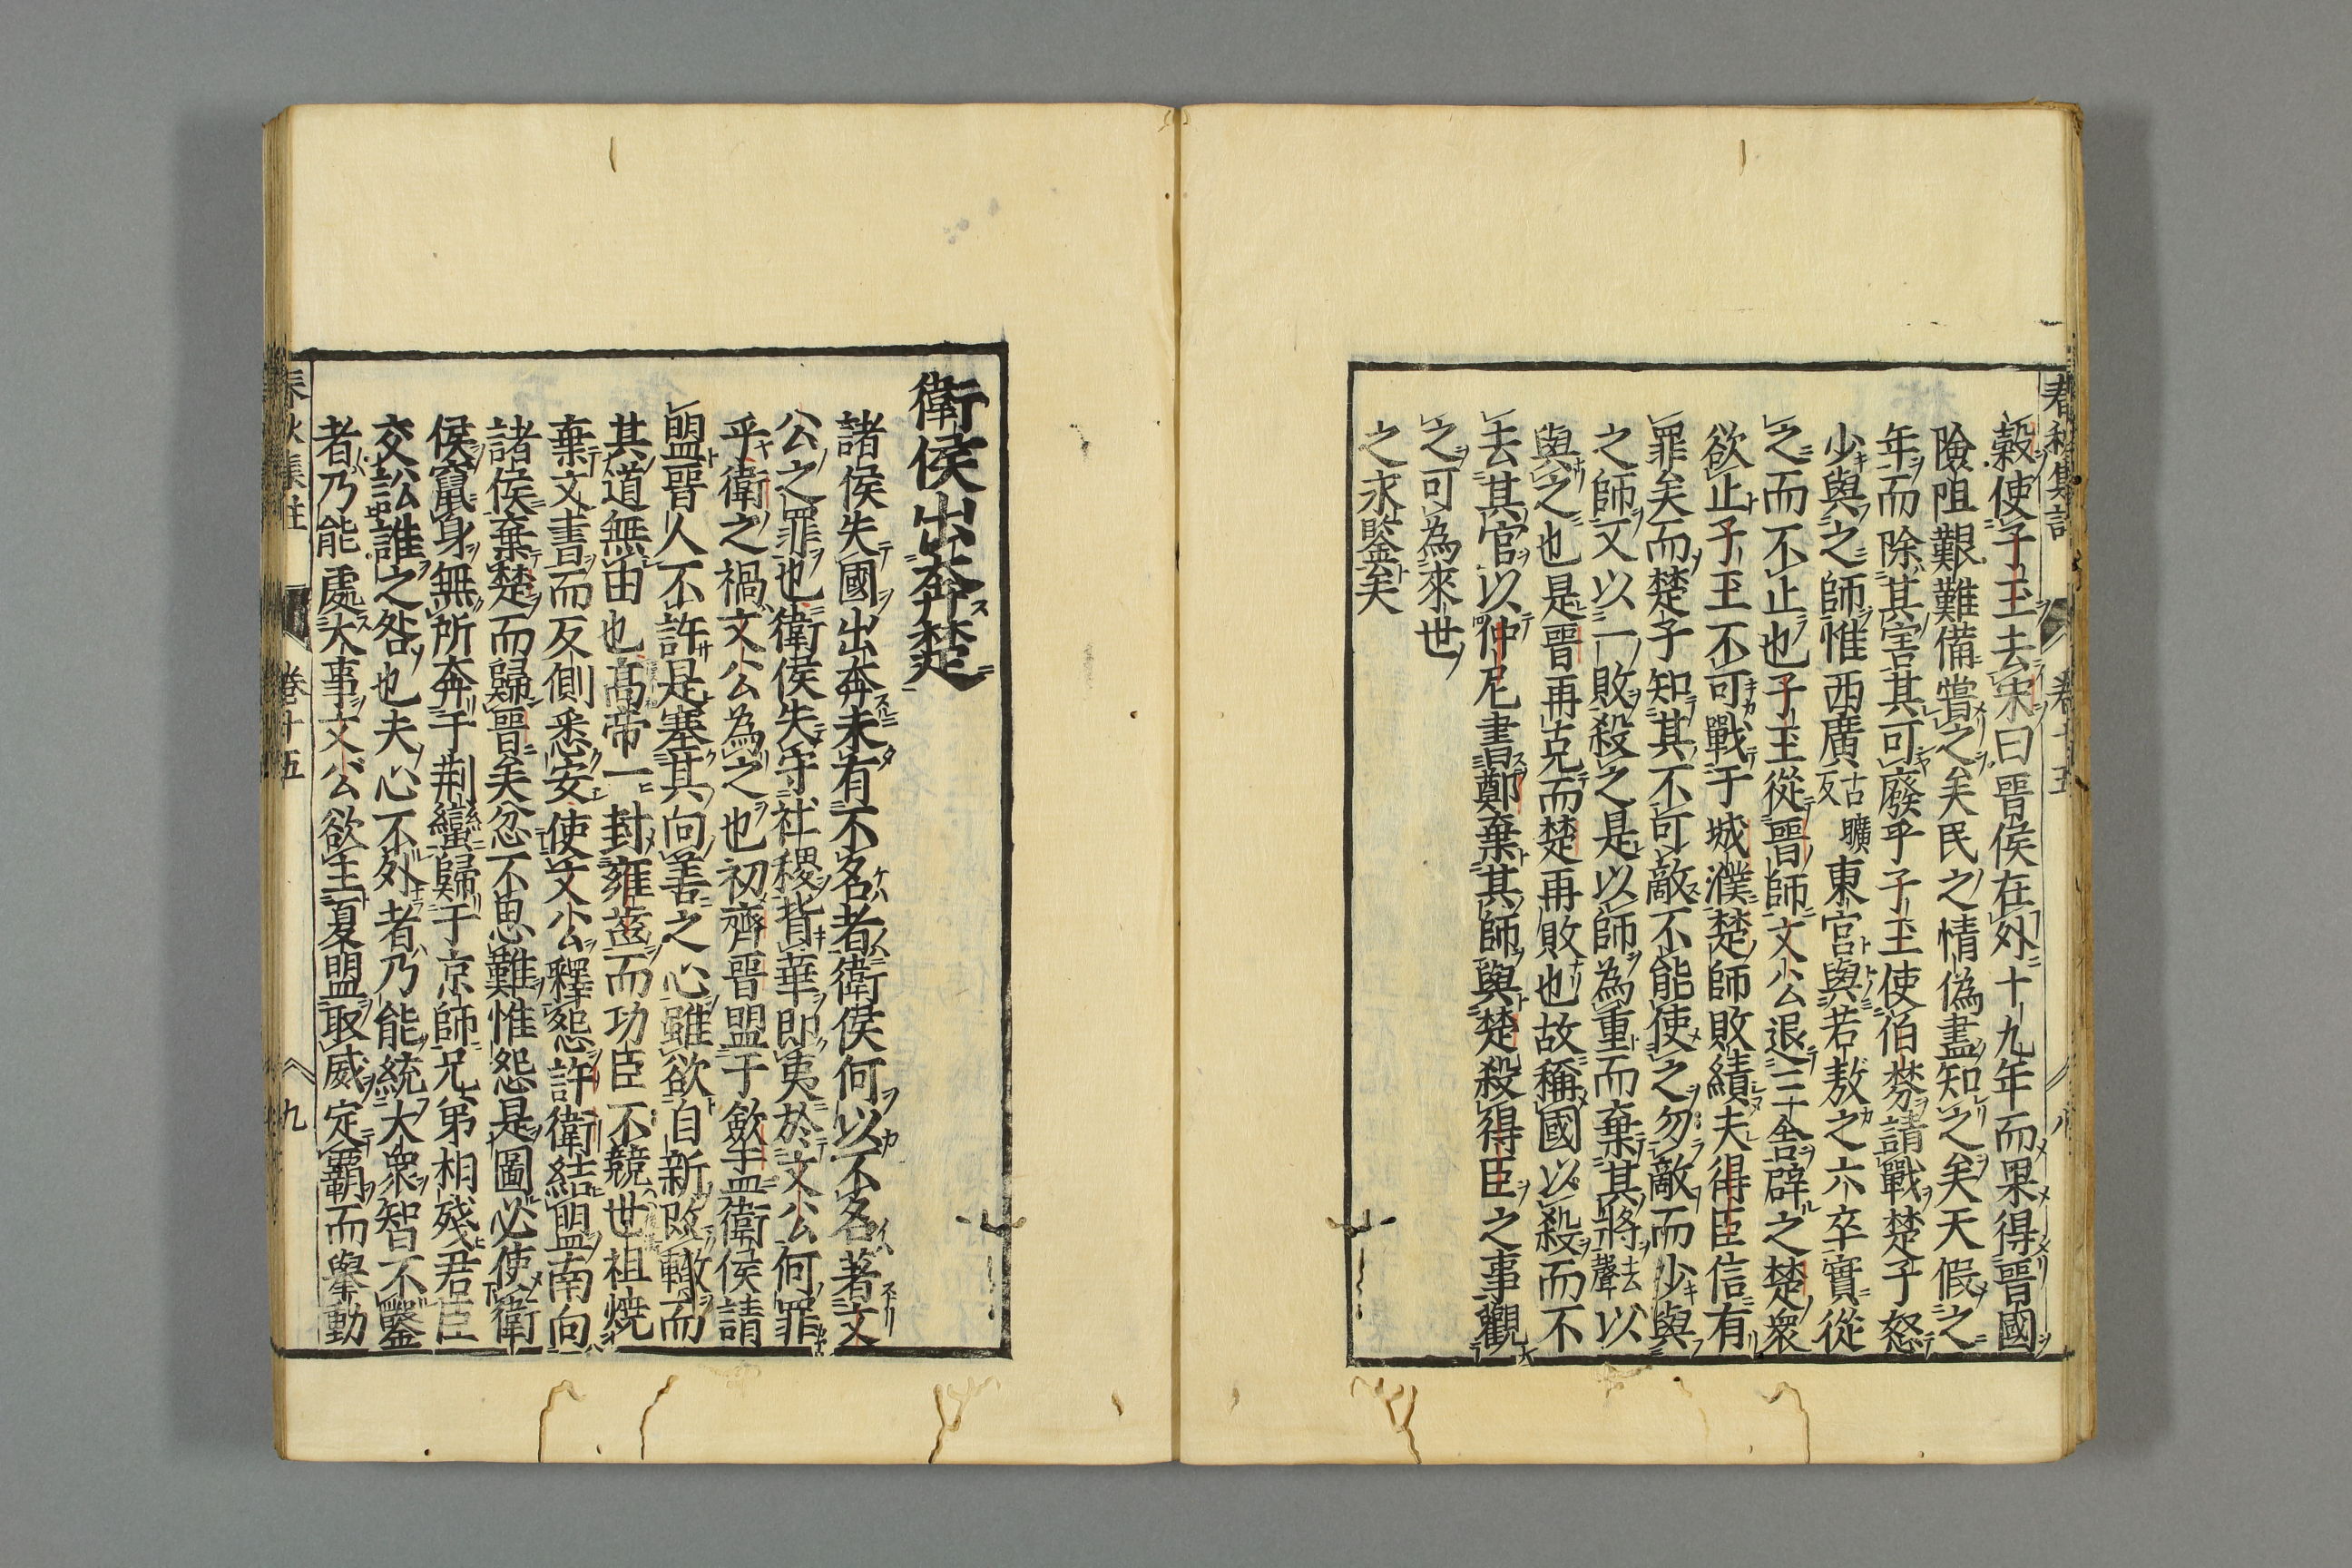 春秋集註 卷十五 八
穀使子玉去宋曰晉侯在外十九年而果得晉國
險阻艱難備嘗之矣民之情偽盡知之矣天假之
年而除其害其可廢乎子玉使伯棼請戰楚子怒
少與之師惟西廣古曠反東宮與若敖之六卒實從
之而不止也子玉從晉師文公退三舍辟之楚衆
欲止子玉不可戰于城濮楚師敗績夫得臣信有
罪矣而楚子知其不可敵不能使之勿敵而少與
之師又以一敗殺之是以師為重而棄其將去聲以
與之也是晉再克而楚再敗也故稱國以殺而不
去其官以仲尼書鄭棄其師與楚殺得臣之事觀
之可為來世
之永鑒矣
衛侯出奔楚
諸侯失國出奔未有不名者衛侯何以不名著文
公之罪也衛侯失守社稷背華即夷於文公何罪
乎衛之禍文公為之也初齊晉盟于斂盂衛侯請
盟晉人不許是塞其向善之心雖欲自新改轍而
其道無由也高帝一封雍齒而功臣不競世祖燒
棄文書而反側悉安使文公釋怨許衛結盟南向
諸侯棄楚而歸晉矣忿不思難惟怨是圖必使衛
侯竄身無所奔于荆蠻歸于京師兄弟相殘君臣
交訟誰之咎也夫心不外者乃能統大衆智不鑿
者乃能處大事文公欲主夏盟取威定霸而舉動
春秋集註 卷十五 九